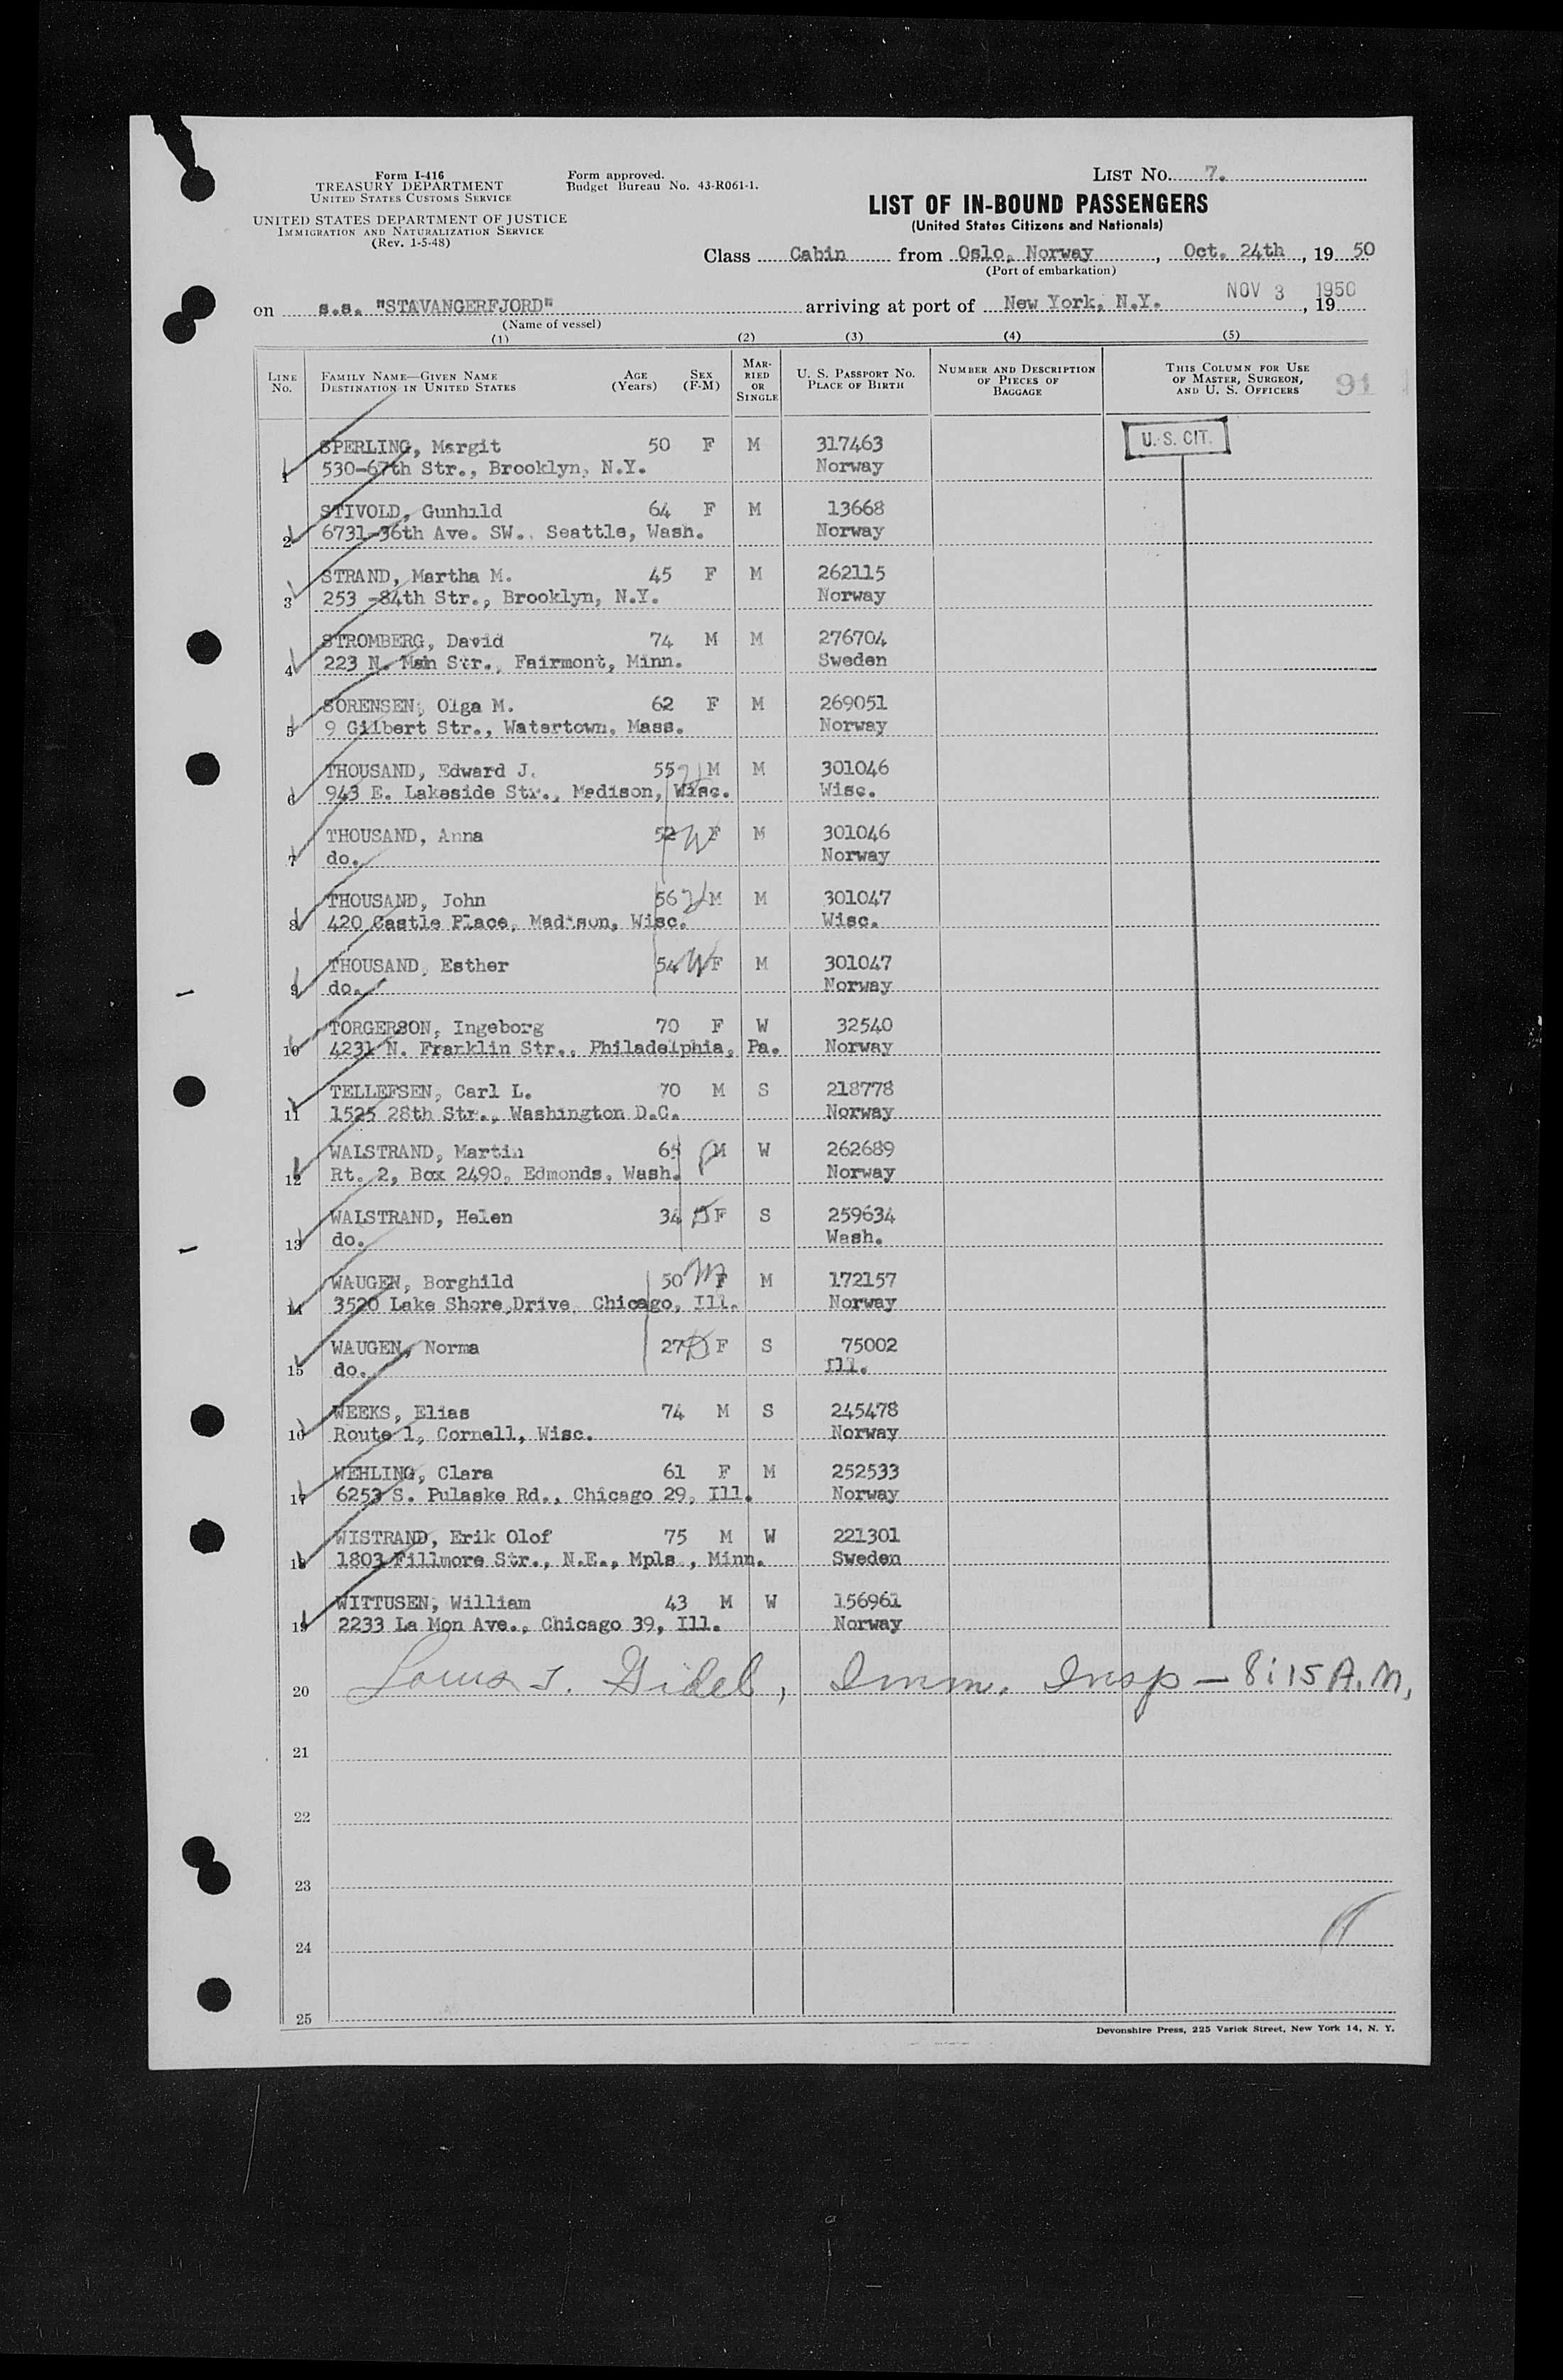 Form I-416
TREASURY DEPARTMENT
UNITED STATES CUSTOMS SERVICE
UNITED STATES DEPARTMENT OF JUSTICE
IMMIGRATION AND NATURALIZATION SERVICE
(Rev. 1-5-48)
Form approved.
Budget Bureau No. 43-R061-1.
LIST No. 7.
LIST OF IN-BOUND PASSENGERS
(United States Citizens and Nationals)
Class Cabin from Oslo, Norway, Oct. 24th, 19 50
(Port of embarkation)
on s.s. "STAVANGERFJORD" arriving at port of New York, N.Y. NOV 3 1950, 19
(Name of vessel)
(1) (2) (3) (4) (5)
LINE No. FAMILY NAME—GIVEN NAME DESTINATION IN UNITED STATES AGE (Years) SEX (F-M) MARRIED OR SINGLE U. S. PASSPORT NO. PLACE OF BIRTH NUMBER AND DESCRIPTION OF PIECES OF BAGGAGE THIS COLUMN FOR USE OF MASTER, SURGEON, AND U. S. OFFICERS 91
SPERLING, Margit 50 F M 317463 U. S. CIT.
1 530-67th Str., Brooklyn, N.Y. Norway
STIVOLD, Gunhild 64 F M 13668
2 6731-36th Ave. SW. Seattle, Wash. Norway
STRAND, Martha M. 45 F M 262115
3 253 -84th Str., Brooklyn, N.Y. Norway
STROMBERG, David 74 M M 276704
4 223 N. Man Str., Fairmont, Minn. Sweden
SORENSEN, Olga M. 62 F M 269051
5 9 Gilbert Str., Watertown, Mass. Norway
THOUSAND, Edward J. 55 M M 301046
6 943 E. Lakeside Str., Madison, Wisc. Wisc.
THOUSAND, Anna 52 W F M 301046
7 do. Norway
THOUSAND, John 56 M M 301047
8 420 Castle Place, Madison, Wisc. Wisc.
THOUSAND, Esther 54 W F M 301047
9 do. Norway
TORGERSON, Ingeborg 70 F W 32540
10 4231 N. Franklin Str., Philadelphia, Pa. Norway
TELLEFSEN, Carl L. 70 M S 218778
11 1525 28th Str., Washington D.C. Norway
WALSTRAND, Martin 65 M W 262689
12 Rt. 2, Box 2490, Edmonds, Wash. Norway
WALSTRAND, Helen 34 D F S 259634
13 do. Wash.
WAUGEN, Borghild 50 M F M 172157
14 3520 Lake Shore Drive, Chicago, Ill. Norway
WAUGEN, Norma 27 D F S 75002
15 do. Ill.
WEEKS, Elias 74 M S 245478
16 Route 1, Cornell, Wisc. Norway
WEHLING, Clara 61 F M 252533
17 6253 S. Pulaske Rd., Chicago 29, Ill. Norway
WISTRAND, Erik Olof 75 M W 221301
18 1803 Fillmore Str., N.E., Mpls., Minn. Sweden
WITTUSEN, William 43 M W 156961
19 2233 La Mon Ave., Chicago 39, Ill. Norway
20 Louis J. Gidel, Imm. Insp — 8:15 A.M.
21
22
23
24
25
Devonshire Press, 225 Varick Street, New York 14, N. Y.